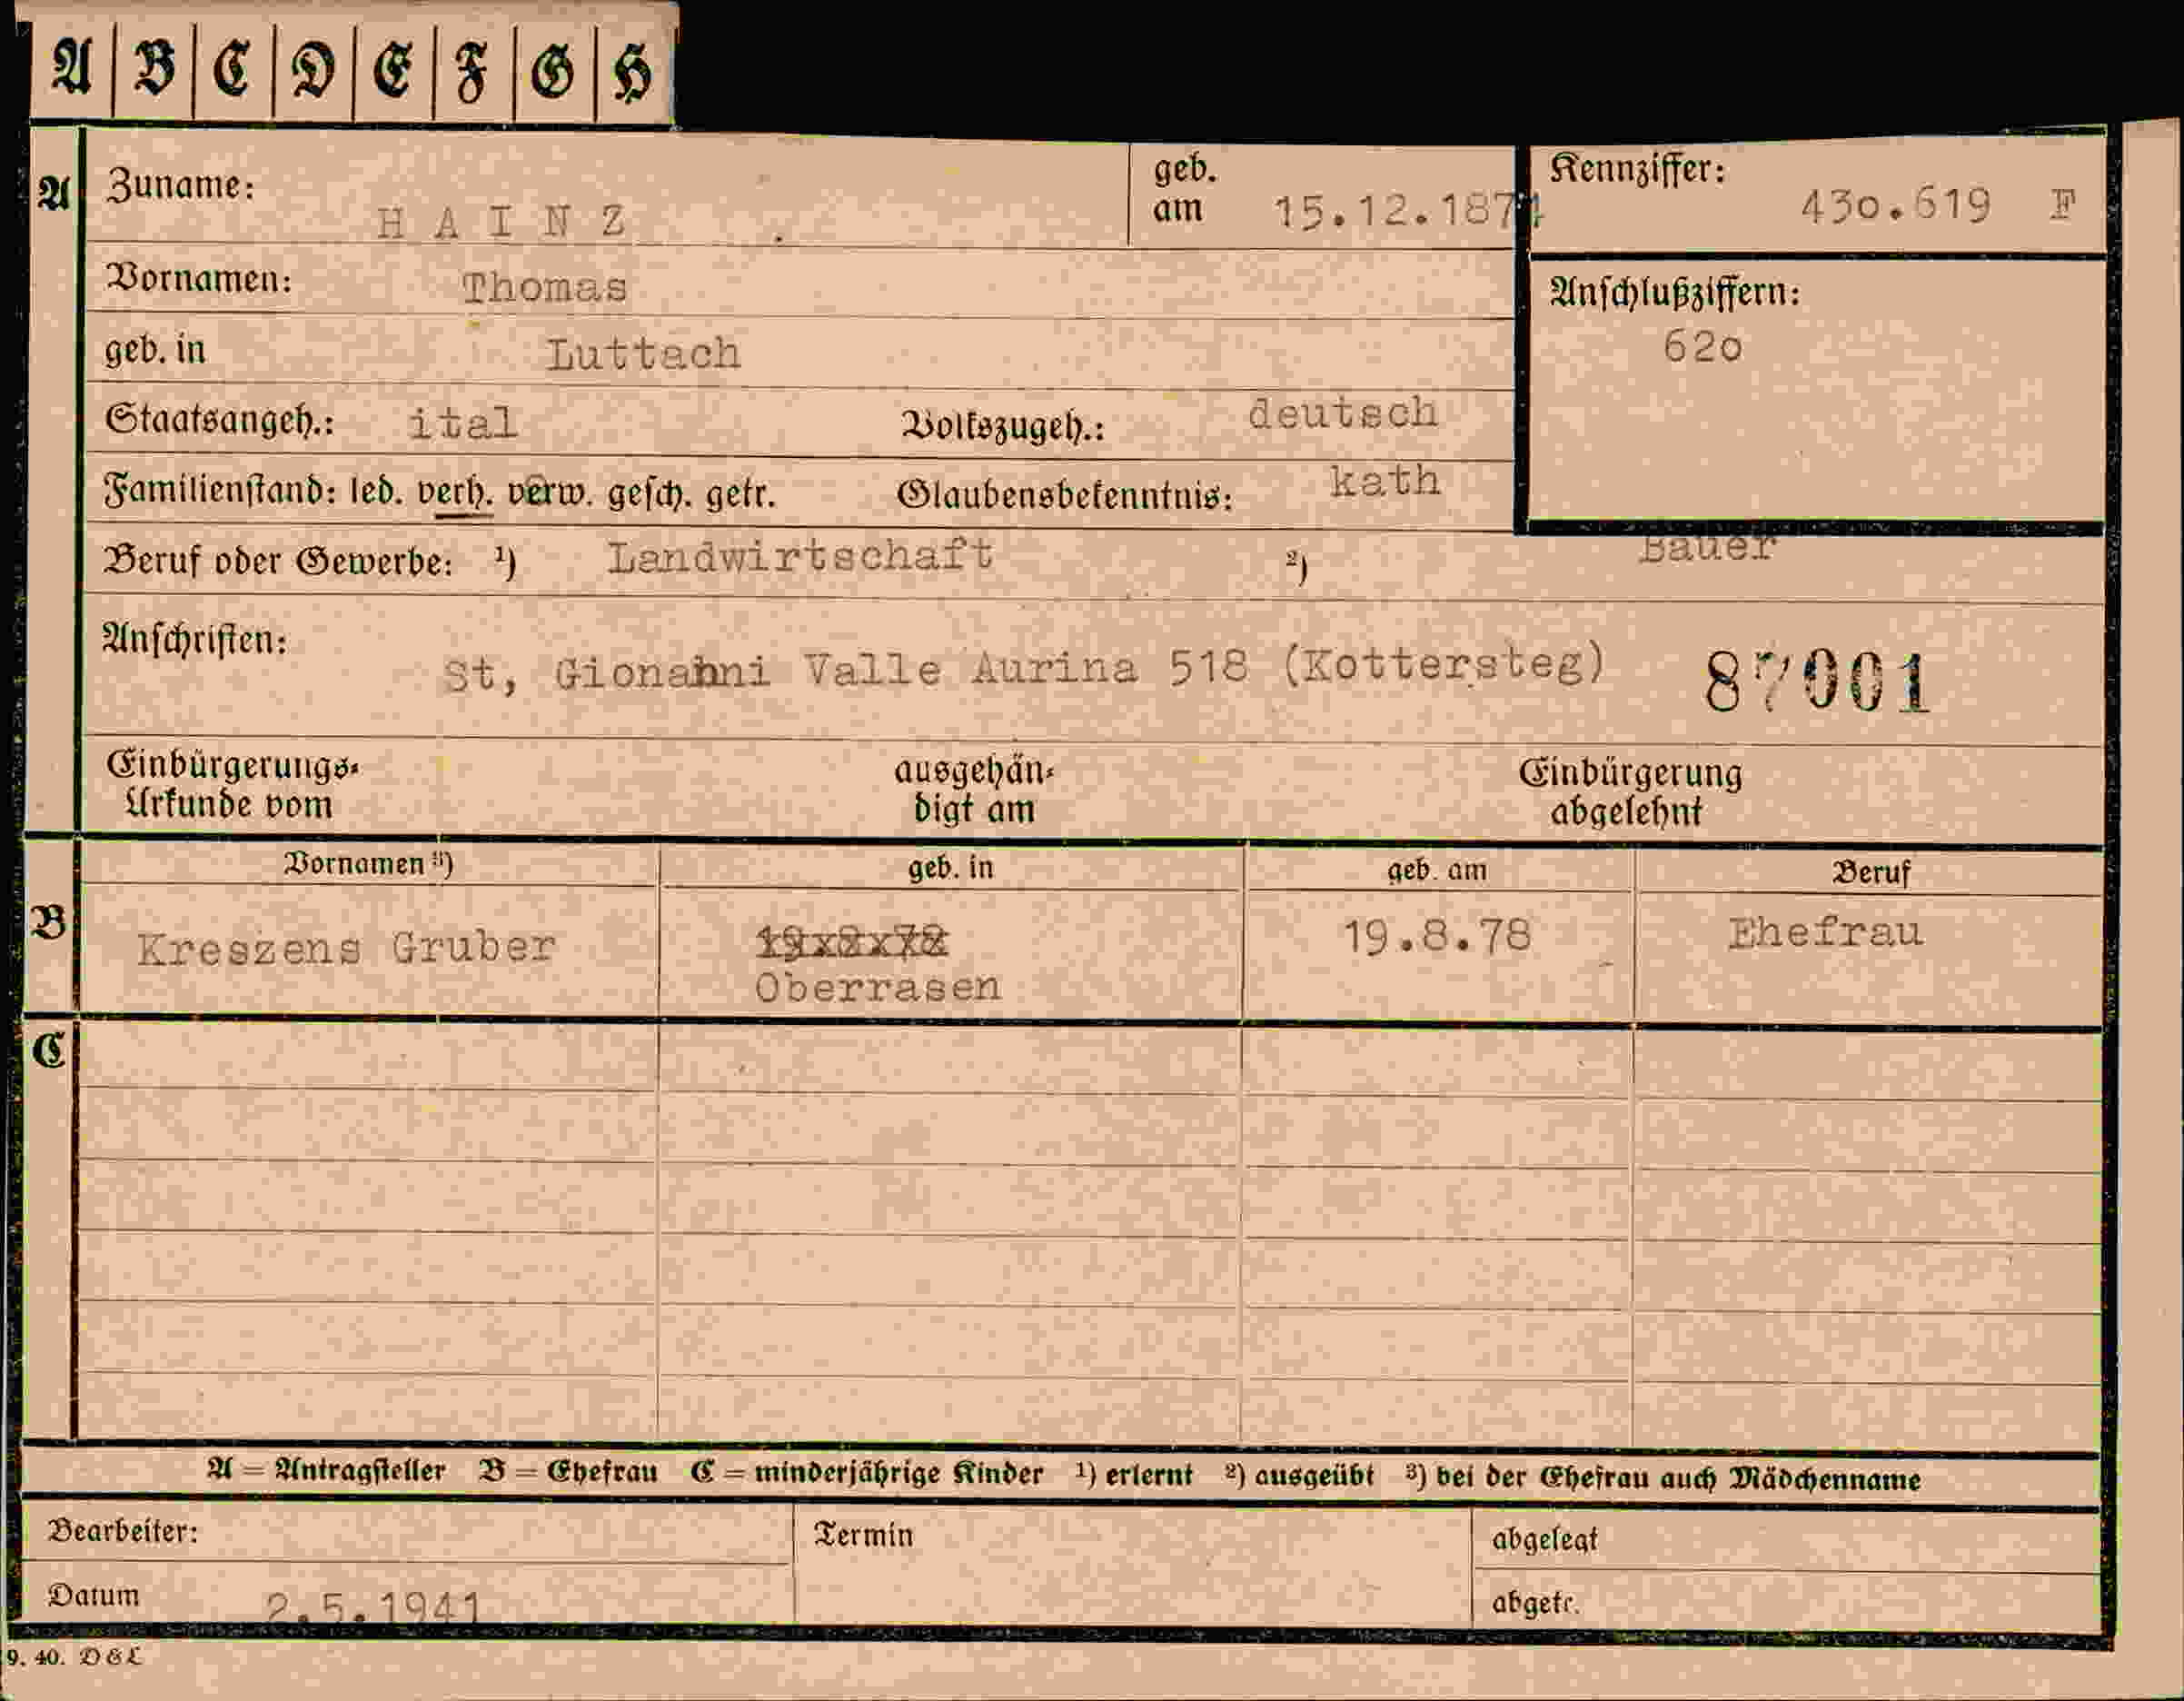 A B C D E F G H
A Zuname: HAINZ geb. am 15.12.1874 Kennziffer: 430.619 F
Vornamen: Thomas Anschlußziffern:
geb. in Luttach 620
Staatsangeh.: ital Volkszugeh.: deutsch
Familienstand: led. verh. verw. gesch. getr. Glaubensbekenntnis: kath
Beruf oder Gewerbe: ¹) Landwirtschaft ²) Bauer
Anschriften: St, Gionahni Valle Aurina 518 (Kottersteg) 87001
Einbürgerungs- ausgehän- Einbürgerung
Urkunde vom digt am abgelehnt
Vornamen ³) geb. in geb. am Beruf
B Kreszens Gruber 19.8.78 Ehefrau
Oberrasen
C
A = Antragsteller B = Ehefrau C = minderjährige Kinder ¹) erlernt ²) ausgeübt ³) bei der Ehefrau auch Mädchenname
Bearbeiter: Termin abgelegt
Datum 2.5.1941 abgetr.
9. 40. D & L